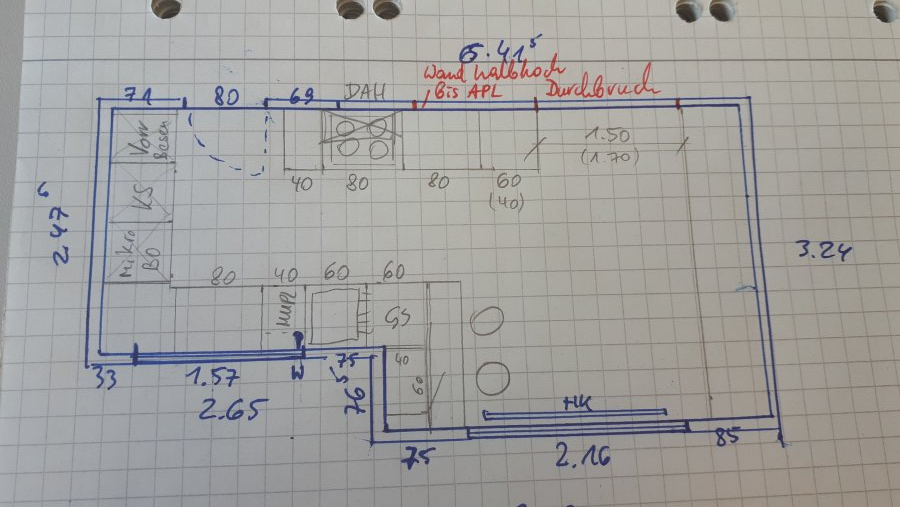 6.41⁵
Wand halbhoch
bis APL
Durchbruch
71
80
69
DAH
Vorr
KS
Mikro
BO
40
80
80
60
(40)
1.50
(1.70)
2.47⁶
3.24
80
40
60
60
MÜPL
GS
40
60
33
1.57
W
75
2.65
76⁵
HK
75
2.16
85